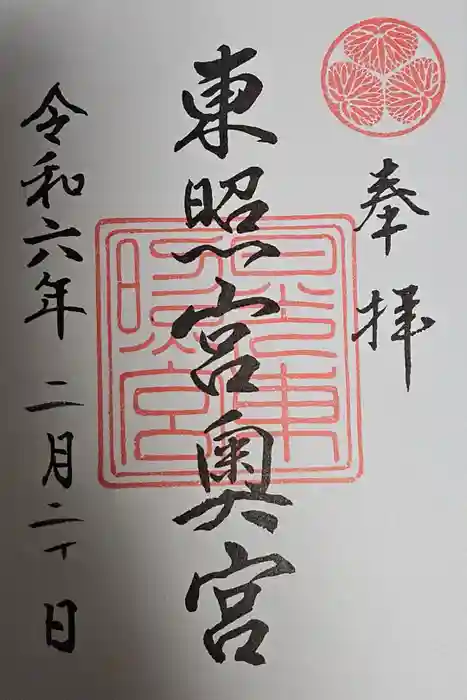 奉拝
東照宮奥宮
日光東
照宮
令和六年 二月二十日